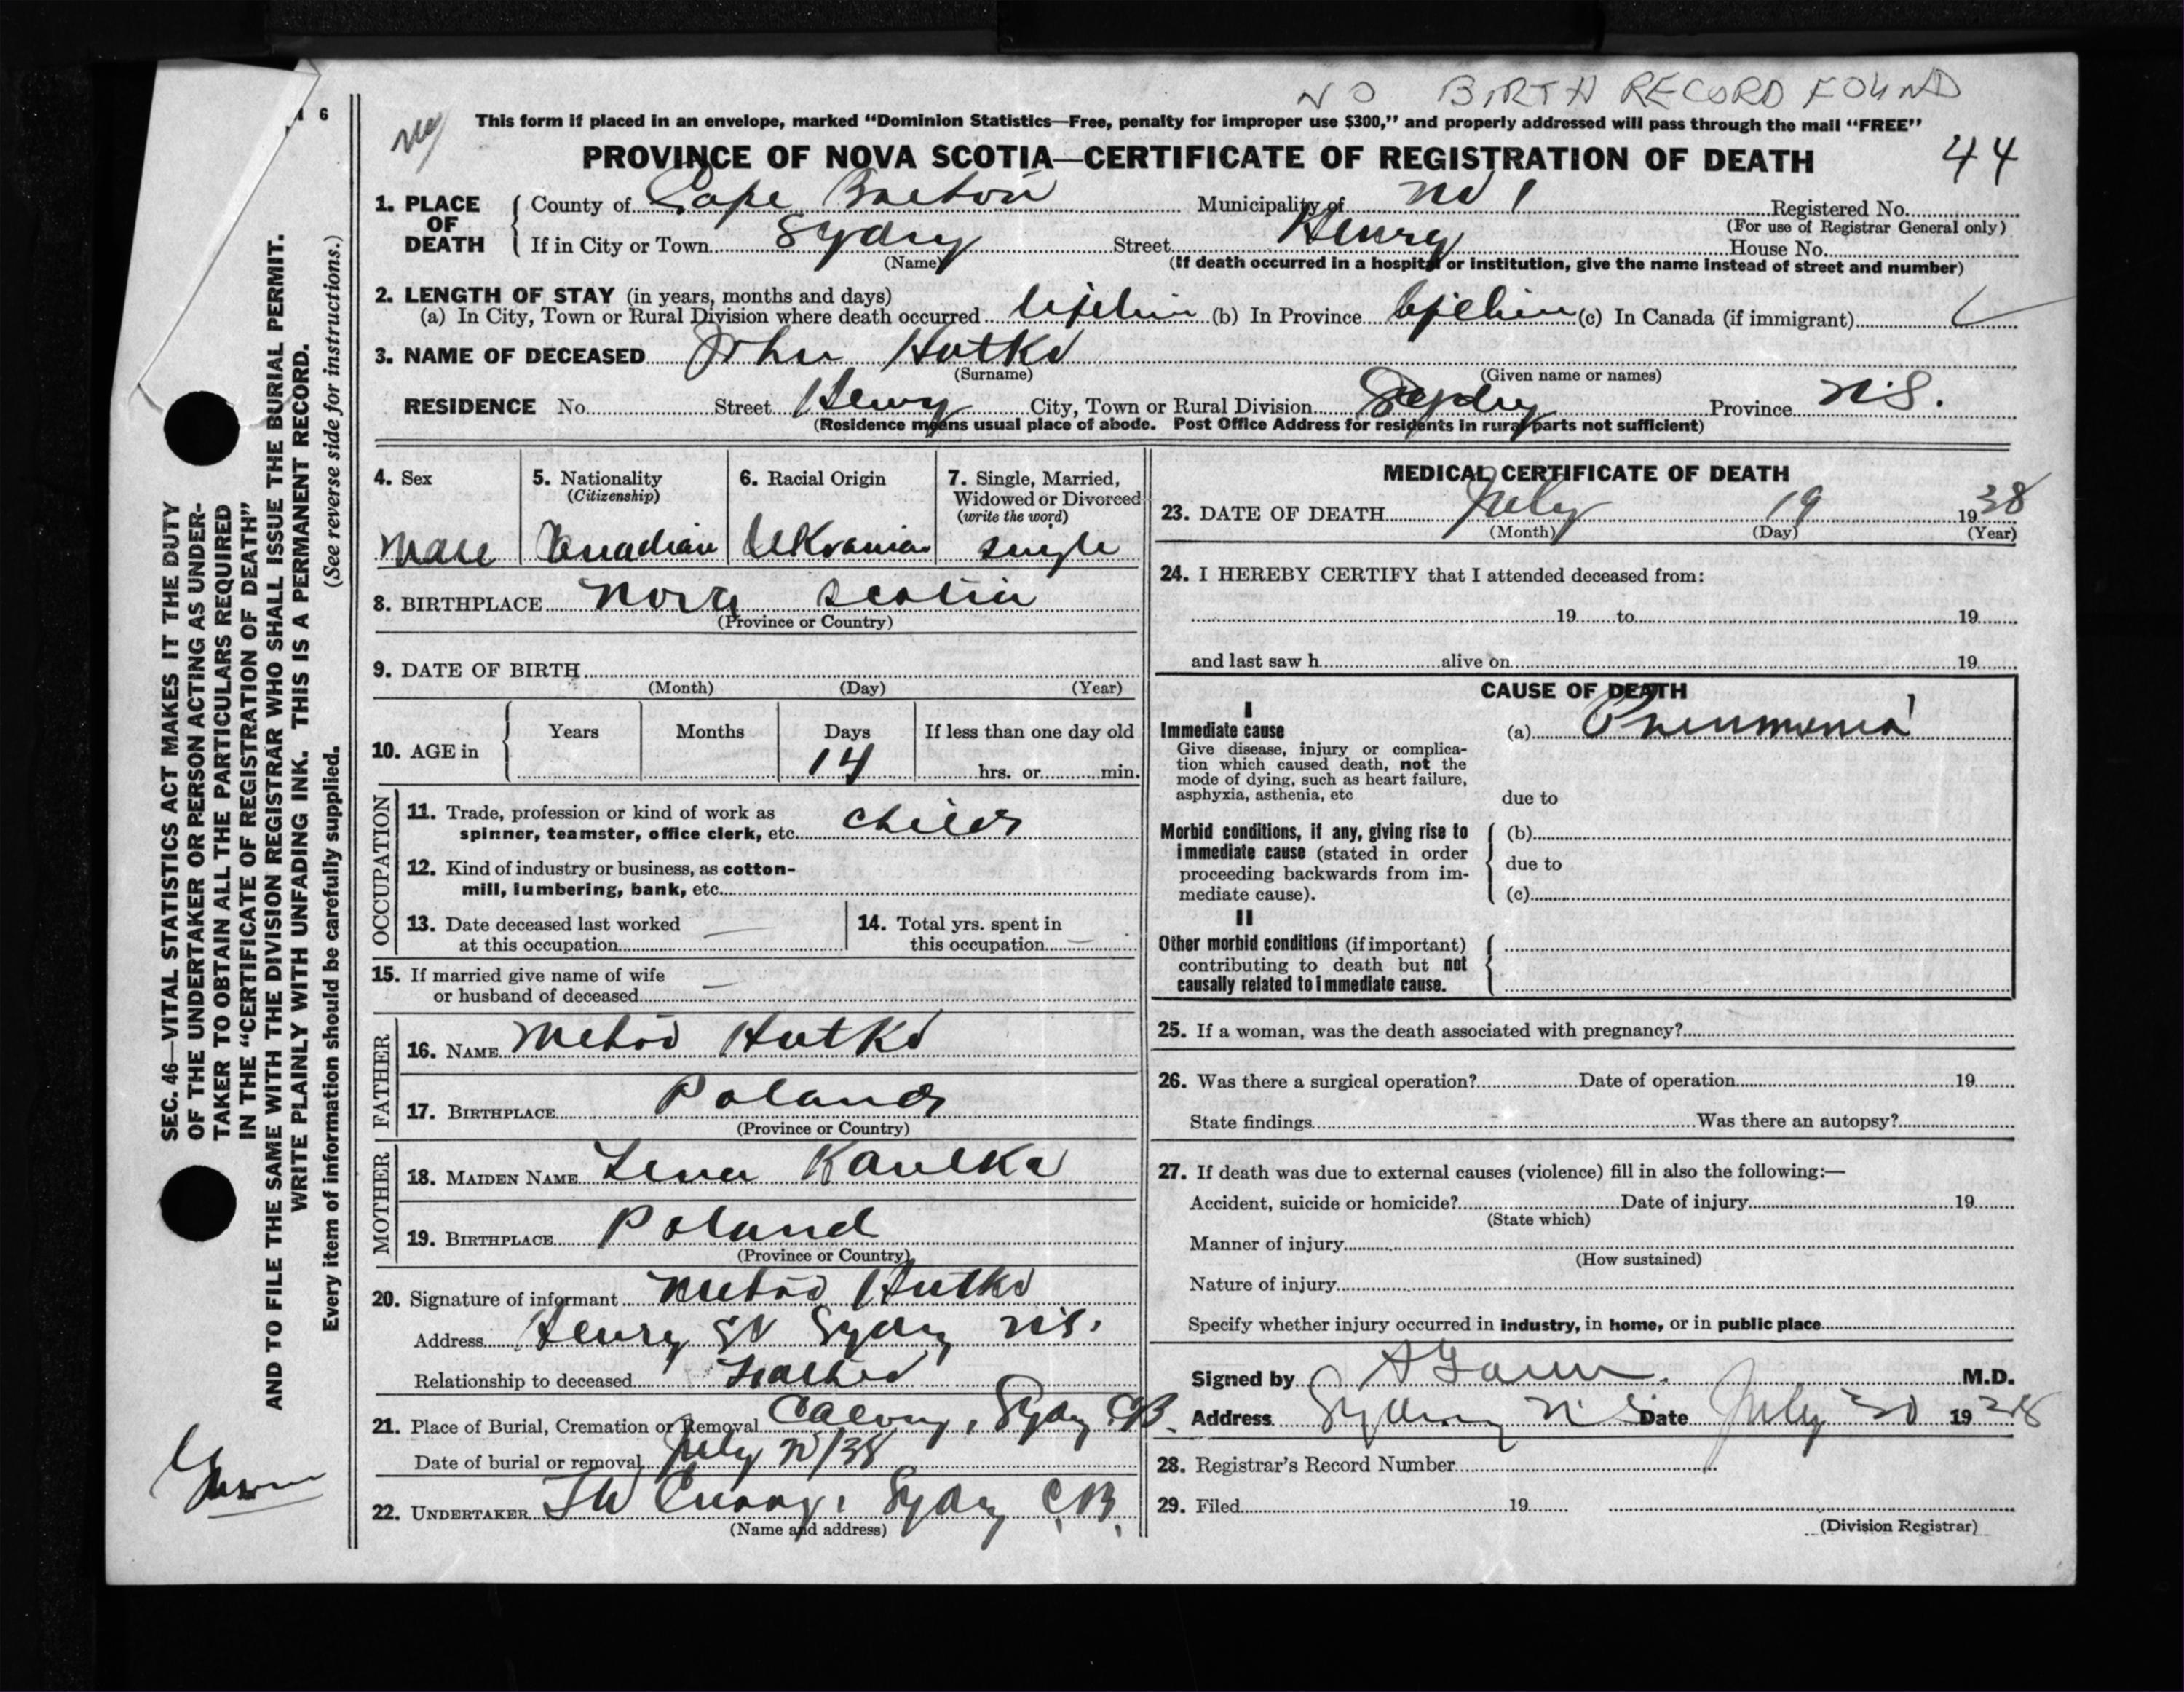 NO BIRTH RECORD FOUND
6
This form if placed in an envelope, marked “Dominion Statistics—Free, penalty for improper use $300,” and properly addressed will pass through the mail “FREE”
PROVINCE OF NOVA SCOTIA—CERTIFICATE OF REGISTRATION OF DEATH 44
1. PLACE OF DEATH
County of Cape Breton Municipality of No 1 Registered No.
(For use of Registrar General only)
If in City or Town Sydney Street Henry House No.
(Name) (If death occurred in a hospital or institution, give the name instead of street and number)
2. LENGTH OF STAY (in years, months and days)
(a) In City, Town or Rural Division where death occurred lifetime (b) In Province lifetime (c) In Canada (if immigrant)
3. NAME OF DECEASED John Hutko
(Surname) (Given name or names)
RESIDENCE No. Street Henry City, Town or Rural Division Sydney Province N.S.
(Residence means usual place of abode. Post Office Address for residents in rural parts not sufficient)
4. Sex
Male
5. Nationality
(Citizenship)
Canadian
6. Racial Origin
Ukranian
7. Single, Married,
Widowed or Divorced
(write the word)
single
8. BIRTHPLACE Nova Scotia
(Province or Country)
9. DATE OF BIRTH
(Month) (Day) (Year)
10. AGE in
Years Months Days If less than one day old
14 hrs. or min.
OCCUPATION
11. Trade, profession or kind of work as
spinner, teamster, office clerk, etc. child
12. Kind of industry or business, as cotton-
mill, lumbering, bank, etc.
13. Date deceased last worked
at this occupation —
14. Total yrs. spent in
this occupation —
15. If married give name of wife
or husband of deceased —
FATHER
16. NAME Metro Hutko
17. BIRTHPLACE Poland
(Province or Country)
MOTHER
18. MAIDEN NAME Lena
19. BIRTHPLACE Poland
(Province or Country)
20. Signature of informant Metro Hutko
Address Henry St Sydney N.S.
Relationship to deceased Father
21. Place of Burial, Cremation or Removal Calvary, Sydney C.B.
Date of burial or removal July 20/38
22. UNDERTAKER Sydney C.B.
(Name and address)
MEDICAL CERTIFICATE OF DEATH
23. DATE OF DEATH July 19 1938
(Month) (Day) (Year)
24. I HEREBY CERTIFY that I attended deceased from:
19 to 19
and last saw h alive on 19
CAUSE OF DEATH
I
Immediate cause
Give disease, injury or complica-
tion which caused death, not the
mode of dying, such as heart failure,
asphyxia, asthenia, etc
(a) Pneumonia
due to
Morbid conditions, if any, giving rise to
immediate cause (stated in order
proceeding backwards from im-
mediate cause).
(b)
due to
(c)
II
Other morbid conditions (if important)
contributing to death but not
causally related to immediate cause.
25. If a woman, was the death associated with pregnancy?
26. Was there a surgical operation? Date of operation 19
State findings Was there an autopsy?
27. If death was due to external causes (violence) fill in also the following:—
Accident, suicide or homicide? Date of injury 19
(State which)
Manner of injury
(How sustained)
Nature of injury
Specify whether injury occurred in industry, in home, or in public place
Signed by M.D.
Address Sydney N.S. Date July 20 1938
28. Registrar's Record Number
29. Filed 19
(Division Registrar)
SEC. 46—VITAL STATISTICS ACT MAKES IT THE DUTY
OF THE UNDERTAKER OR PERSON ACTING AS UNDER-
TAKER TO OBTAIN ALL THE PARTICULARS REQUIRED
IN THE “CERTIFICATE OF REGISTRATION OF DEATH”
AND TO FILE THE SAME WITH THE DIVISION REGISTRAR WHO SHALL ISSUE THE BURIAL PERMIT.
WRITE PLAINLY WITH UNFADING INK. THIS IS A PERMANENT RECORD.
Every item of information should be carefully supplied. (See reverse side for instructions.)